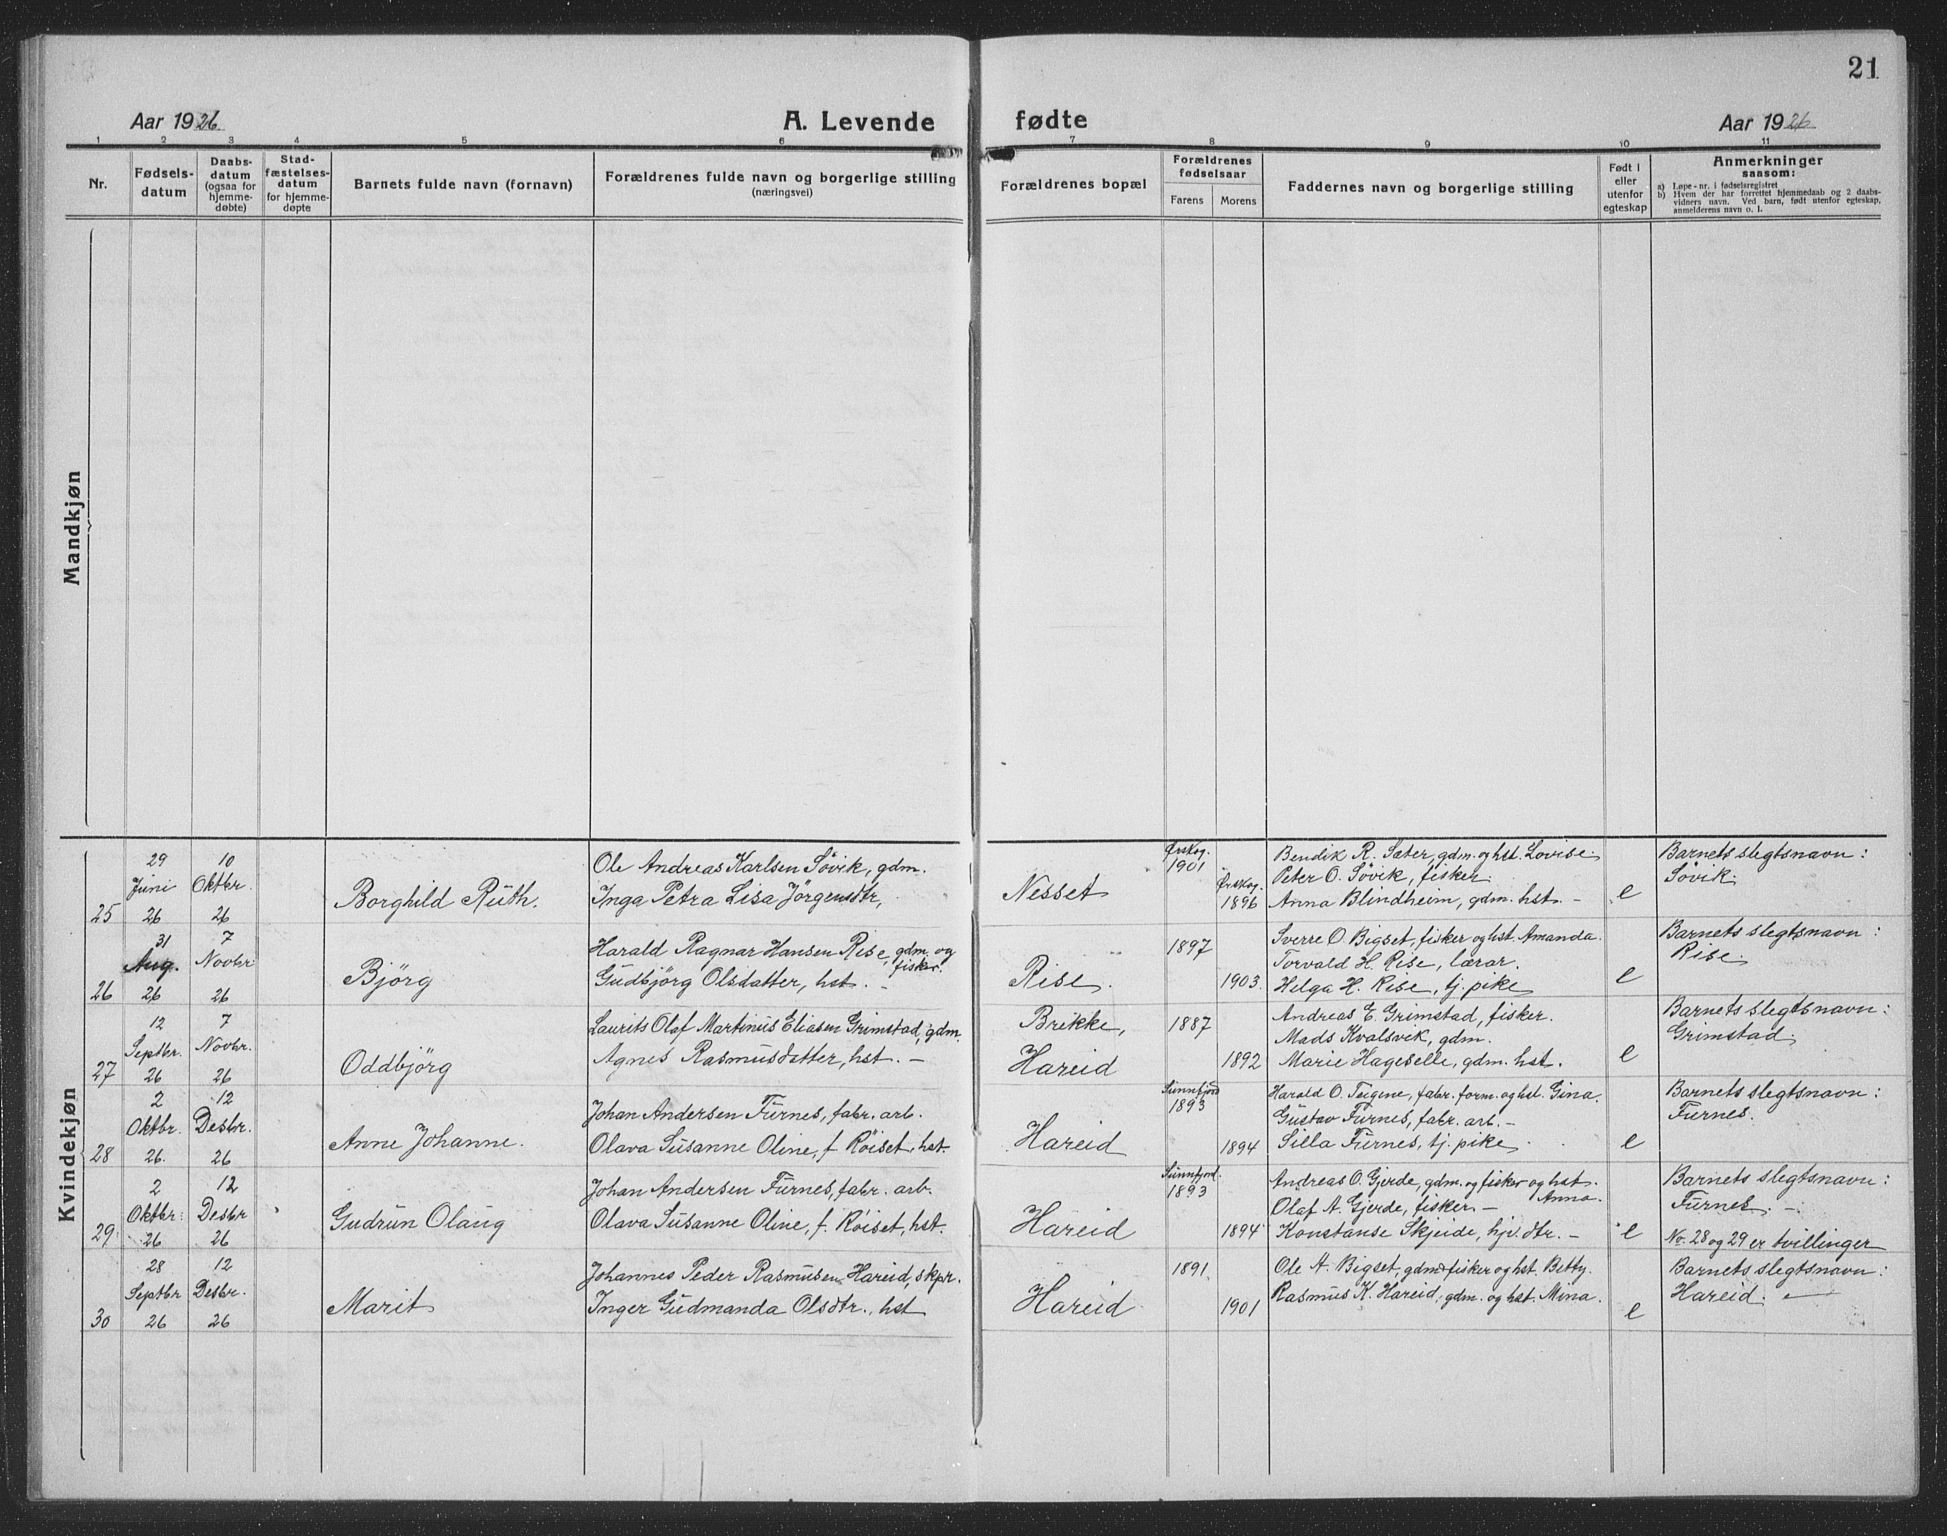 21
Aar 1926
A. Levende
fødte
Aar 1926
1 2 3 4 5 6 7 8 9 10 11
Nr.
Fødsels-
datum
Daabs-
datum
(ogsaa for
hjemme-
døbte)
Stad-
fæstelses-
datum
for hjemme-
døpte
Barnets fulde navn (fornavn)
Forældrenes fulde navn og borgerlige stilling
(næringsvei)
Forældrenes bopæl
Forældrenes
fødselsaar
Farens
Morens
Faddernes navn og borgerlige stilling
Født i
eller
utenfor
egteskap
Anmerkninger
saasom:
a) Løpe-nr. i fødselsregistret
b) Hvem der har forrettet hjemmedaab og 2 daabs-
vidners navn. Ved barn, født utenfor egteskap,
anmelderens navn o. l.
Mandkjøn
Kvindekjøn
25
29
Juni
26
10
Oktbr.
26
Borghild Ruth.
Ole Andreas Karlsen Søvik, gdm.
Inga Petra Lisa Jörgensdtr,
Nesset
Ørskog.
1901
Ørskog.
1896
Bendik R. Sæter, gdm. og hst. Lovise.
Peter O. Søvik, fisker.
Anna Blindheim, gdm. hst. -
e
Barnets slegtsnavn:
Søvik.
26
31
Aug.
26
7
Novbr.
26
Björg
Harald Ragnar Hansen Rise, gdm. og
fisker.
Gudbjörg Olsdatter, hst. -
Rise.
1897
1903.
Sverre O. Bigset, fisker og hst. Amanda.
Torvald H. Rise, lærar.
Helga H. Rise, tj. pike
e
Barnets slegtsnavn:
Rise.
27
12
Septbr.
26
7
Novbr.
26
Oddbjörg
Laurits Olaf Martinus Eliasen Grimstad, gdm.
Agnes Rasmusdatter, hst. -
Brikke,
Hareid
1887
1892
Andreas E. Grimstad, fisker.
Mads Kvalsvik, gdm.
Marie Hageselle, gdm. hst.
e
Barnets slegtsnavn:
Grimstad.
28
2
Oktbr.
26.
12
Desbr.
26
Anne Johanne.
Johan Andersen Furnes, fabr. arb.
Olava Susanne Oline, f. Röiset, hst.
Hareid
Sunnfjord
1893
1894
Harald O. Teigene, fabr. form. og hst. Gina.
Gustav Furnes, fabr. arb. -
Silla Furnes, tj. pike
e
Barnets slegtsnavn:
Furnes.
29
2
Oktbr.
26
12
Desbr
26
Gudrun Olaug
Johan Andersen Furnes, fabr. arb.
Olava Susanne Oline, f. Röiset, hst.
Hareid
Sunnfjord.
1893
1894
Andreas O. Gjerde, gdm. og fisker og hst.
Anna.
Olaf A. Gjerde, fisker -
Konstanse Skjeide, hjv. dtr. -
e
Barnets slegtsnavn:
Furnes. -
No. 28 og 29 er tvillinger
30
28
Septbr
26
12
Desbr.
26
Marit
Johannes Peder Rasmusen Hareid, skpr.
Inger Gudmanda Olsdtr., hst
Hareid
1891
1901
Ole A. Bigset, gdm. fisker og hst. Betty.
Rasmus K. Hareid, gdm. og hst. Mina.
e
Barnets slegtsnavn:
Hareid. -